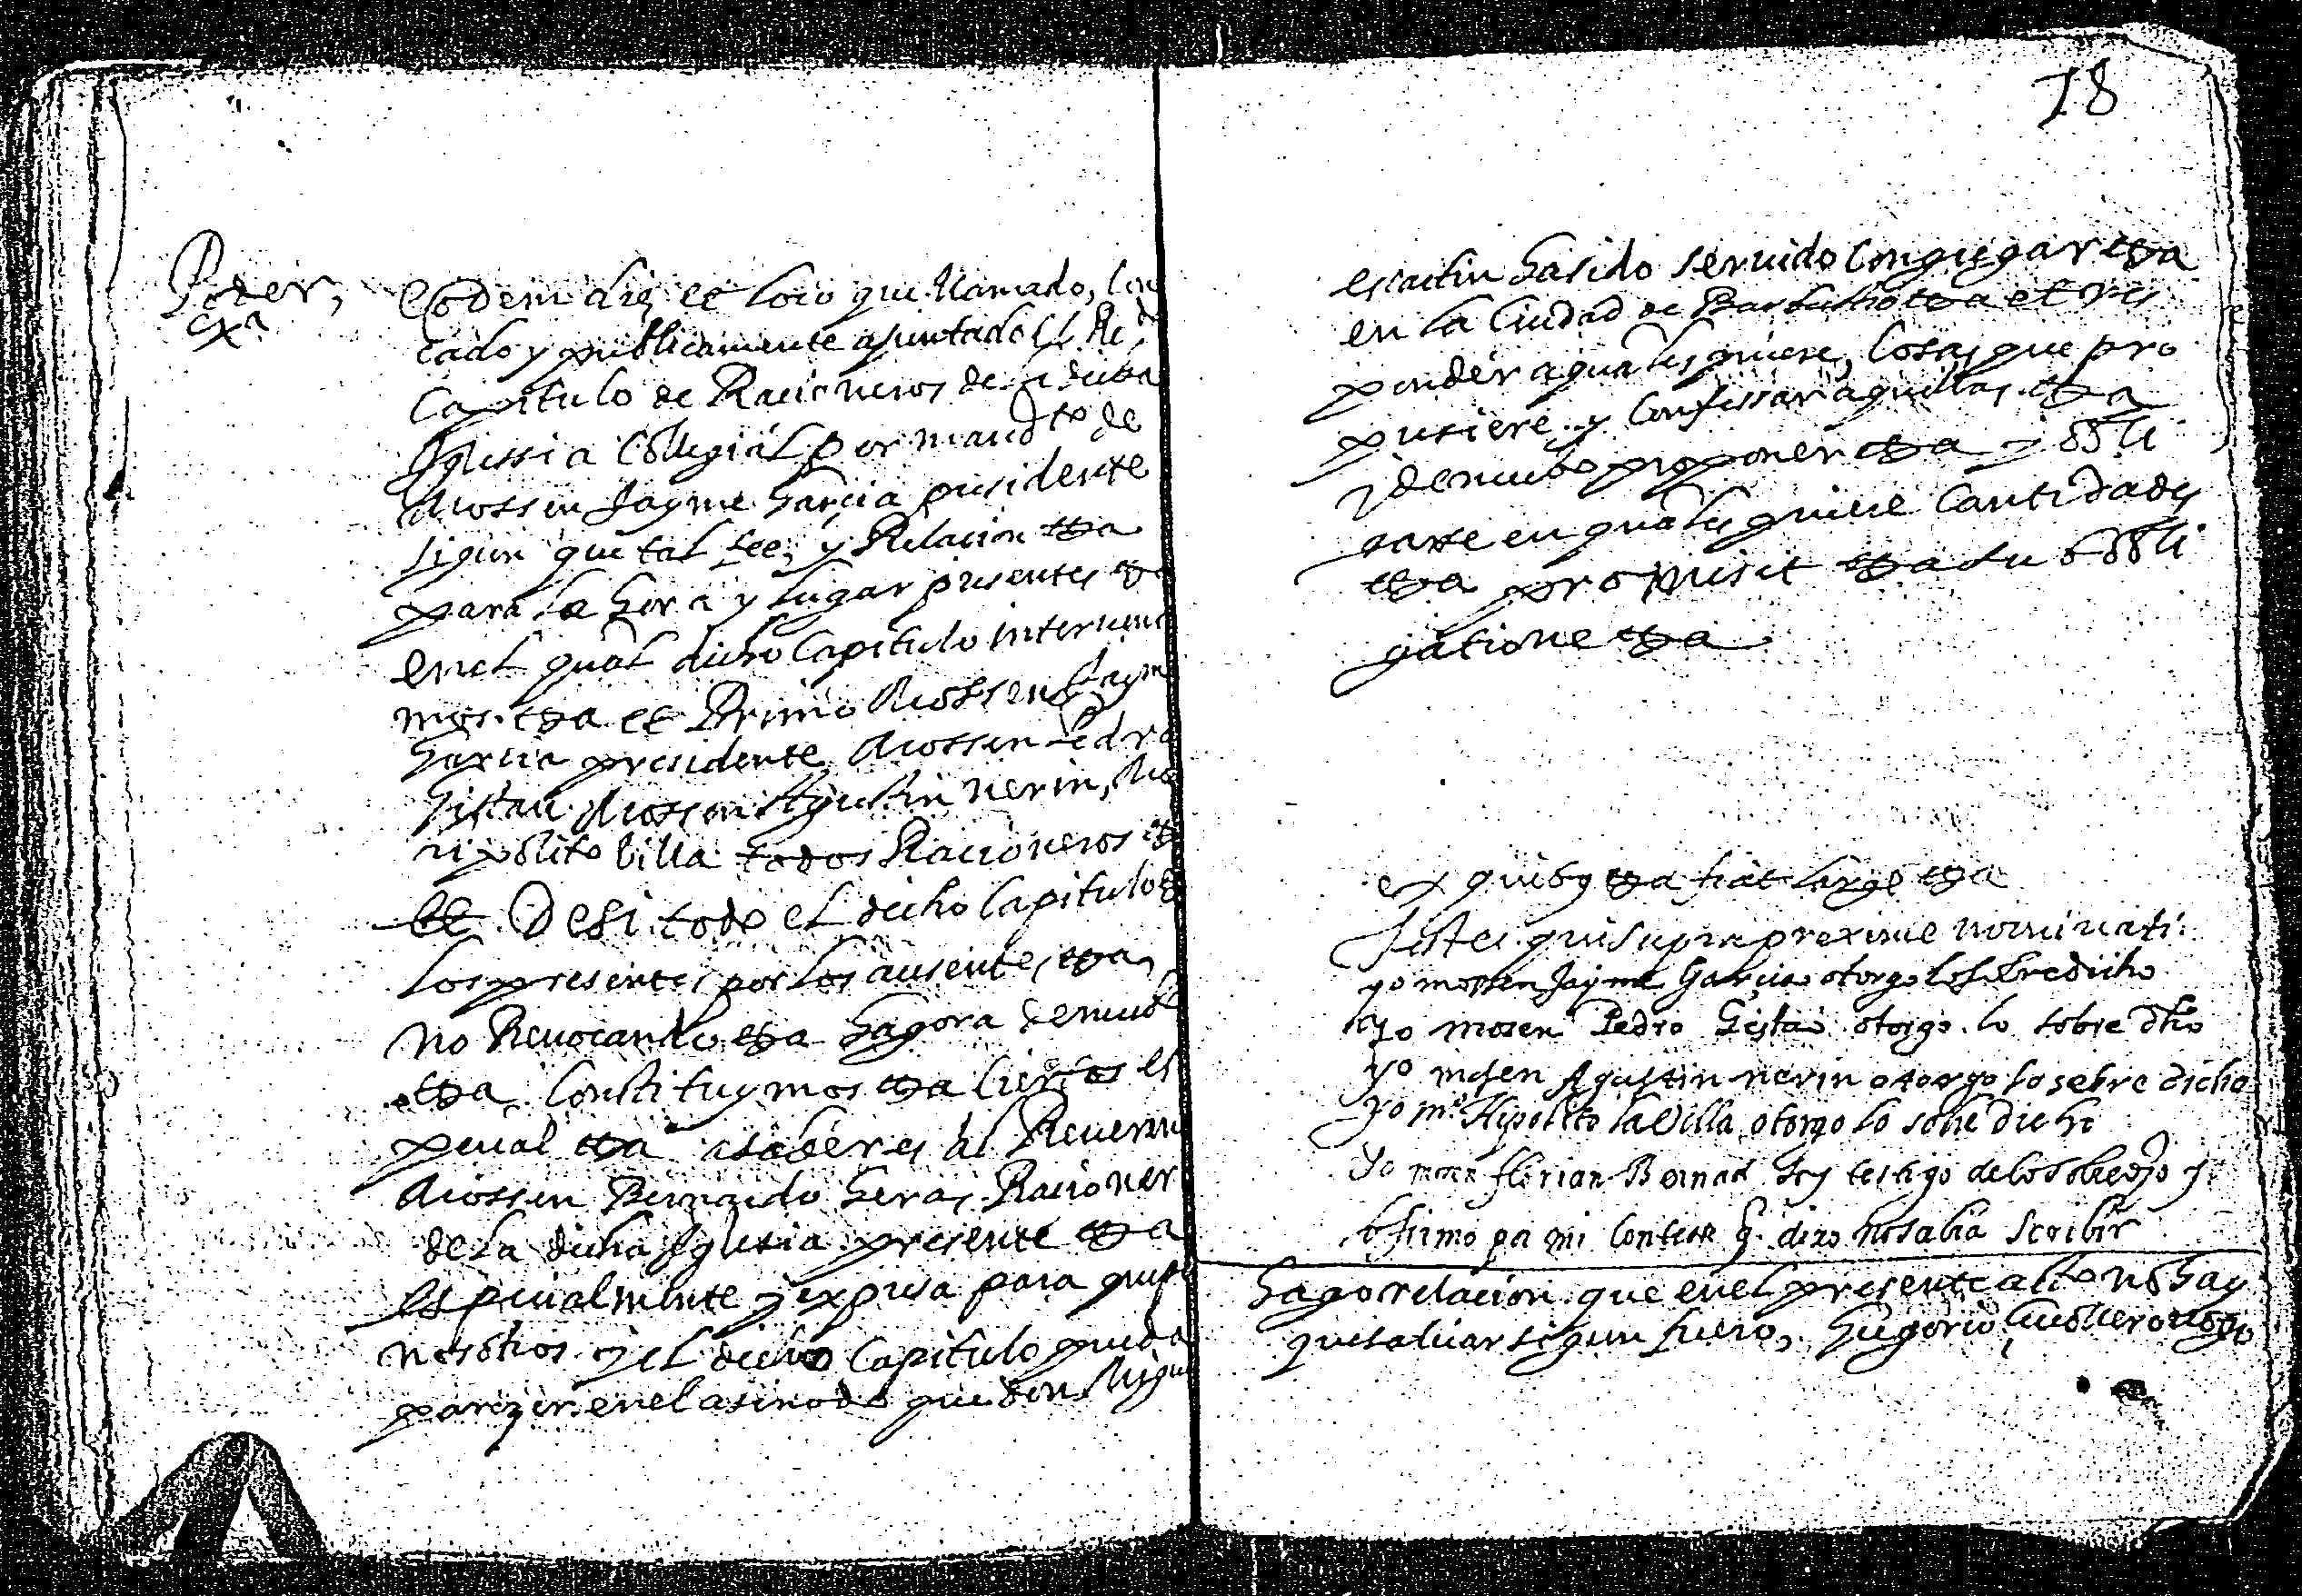 78
Poder,
exa
Eodem die et loco que llamado, con
cado y publicamente ajuntado el Rdo
Capitulo de Racioneros de la dicha
Iglessia Collegial por mandto de
Mossen Jayme Garcia presidente
sigun que tal fee, y Relacion etca
para la hora y lugar presentes etca
en el qual dicho Capitulo interveni
mos etca et Primo Mossen Jayme
Garcia presidente, Mossen Pedro
Gistau Mossen Agustin nerin, Mo
ripolito Villa todos Racioneros etca
et Desi todo el dicho Capitulo etca
los presentes por los ausentes etca
no Revocando etca hagora de nuebo
etca constituymos etca ciertos es
pecial etca asaberes al Reverendo
Mossen Bernardo heras Racionero
de la dicha Iglesia presente etca
especialmente y expresa para que por
nosotros y el dicho Capitulo pueda
parezer en el asinodo que don Miguel
escartin ha sido servido Congregar etca
en la Ciudad de Barbastro etca et res
ponder a qualesquiere, cosas que pro
pusiere y Confessar aquellas etca
y de nuebo proponer etca y obli
garse en qualesquiere Cantidades
etca promisit etca su obli
gatione etca
ex quibus etca fiat large etca
Testes qui supra proxime nominati
yo mossen Jayme Garcia otorgo lo sobredicho
yo mosen Pedro Gistau otorgo lo sobre dho
yo mosen Agustin nerin otorgo lo sobre dicho
yo mn Hipolito la Villa otorgo lo sobre dicho
Yo mosen florian Bernad soy testigo de lo sobredjo y
lo firmo por mi Conteste q dixo no sabia scribir
hago relacion que en el presente acto no hay
que salvar sigun fuero, Gregorio notto